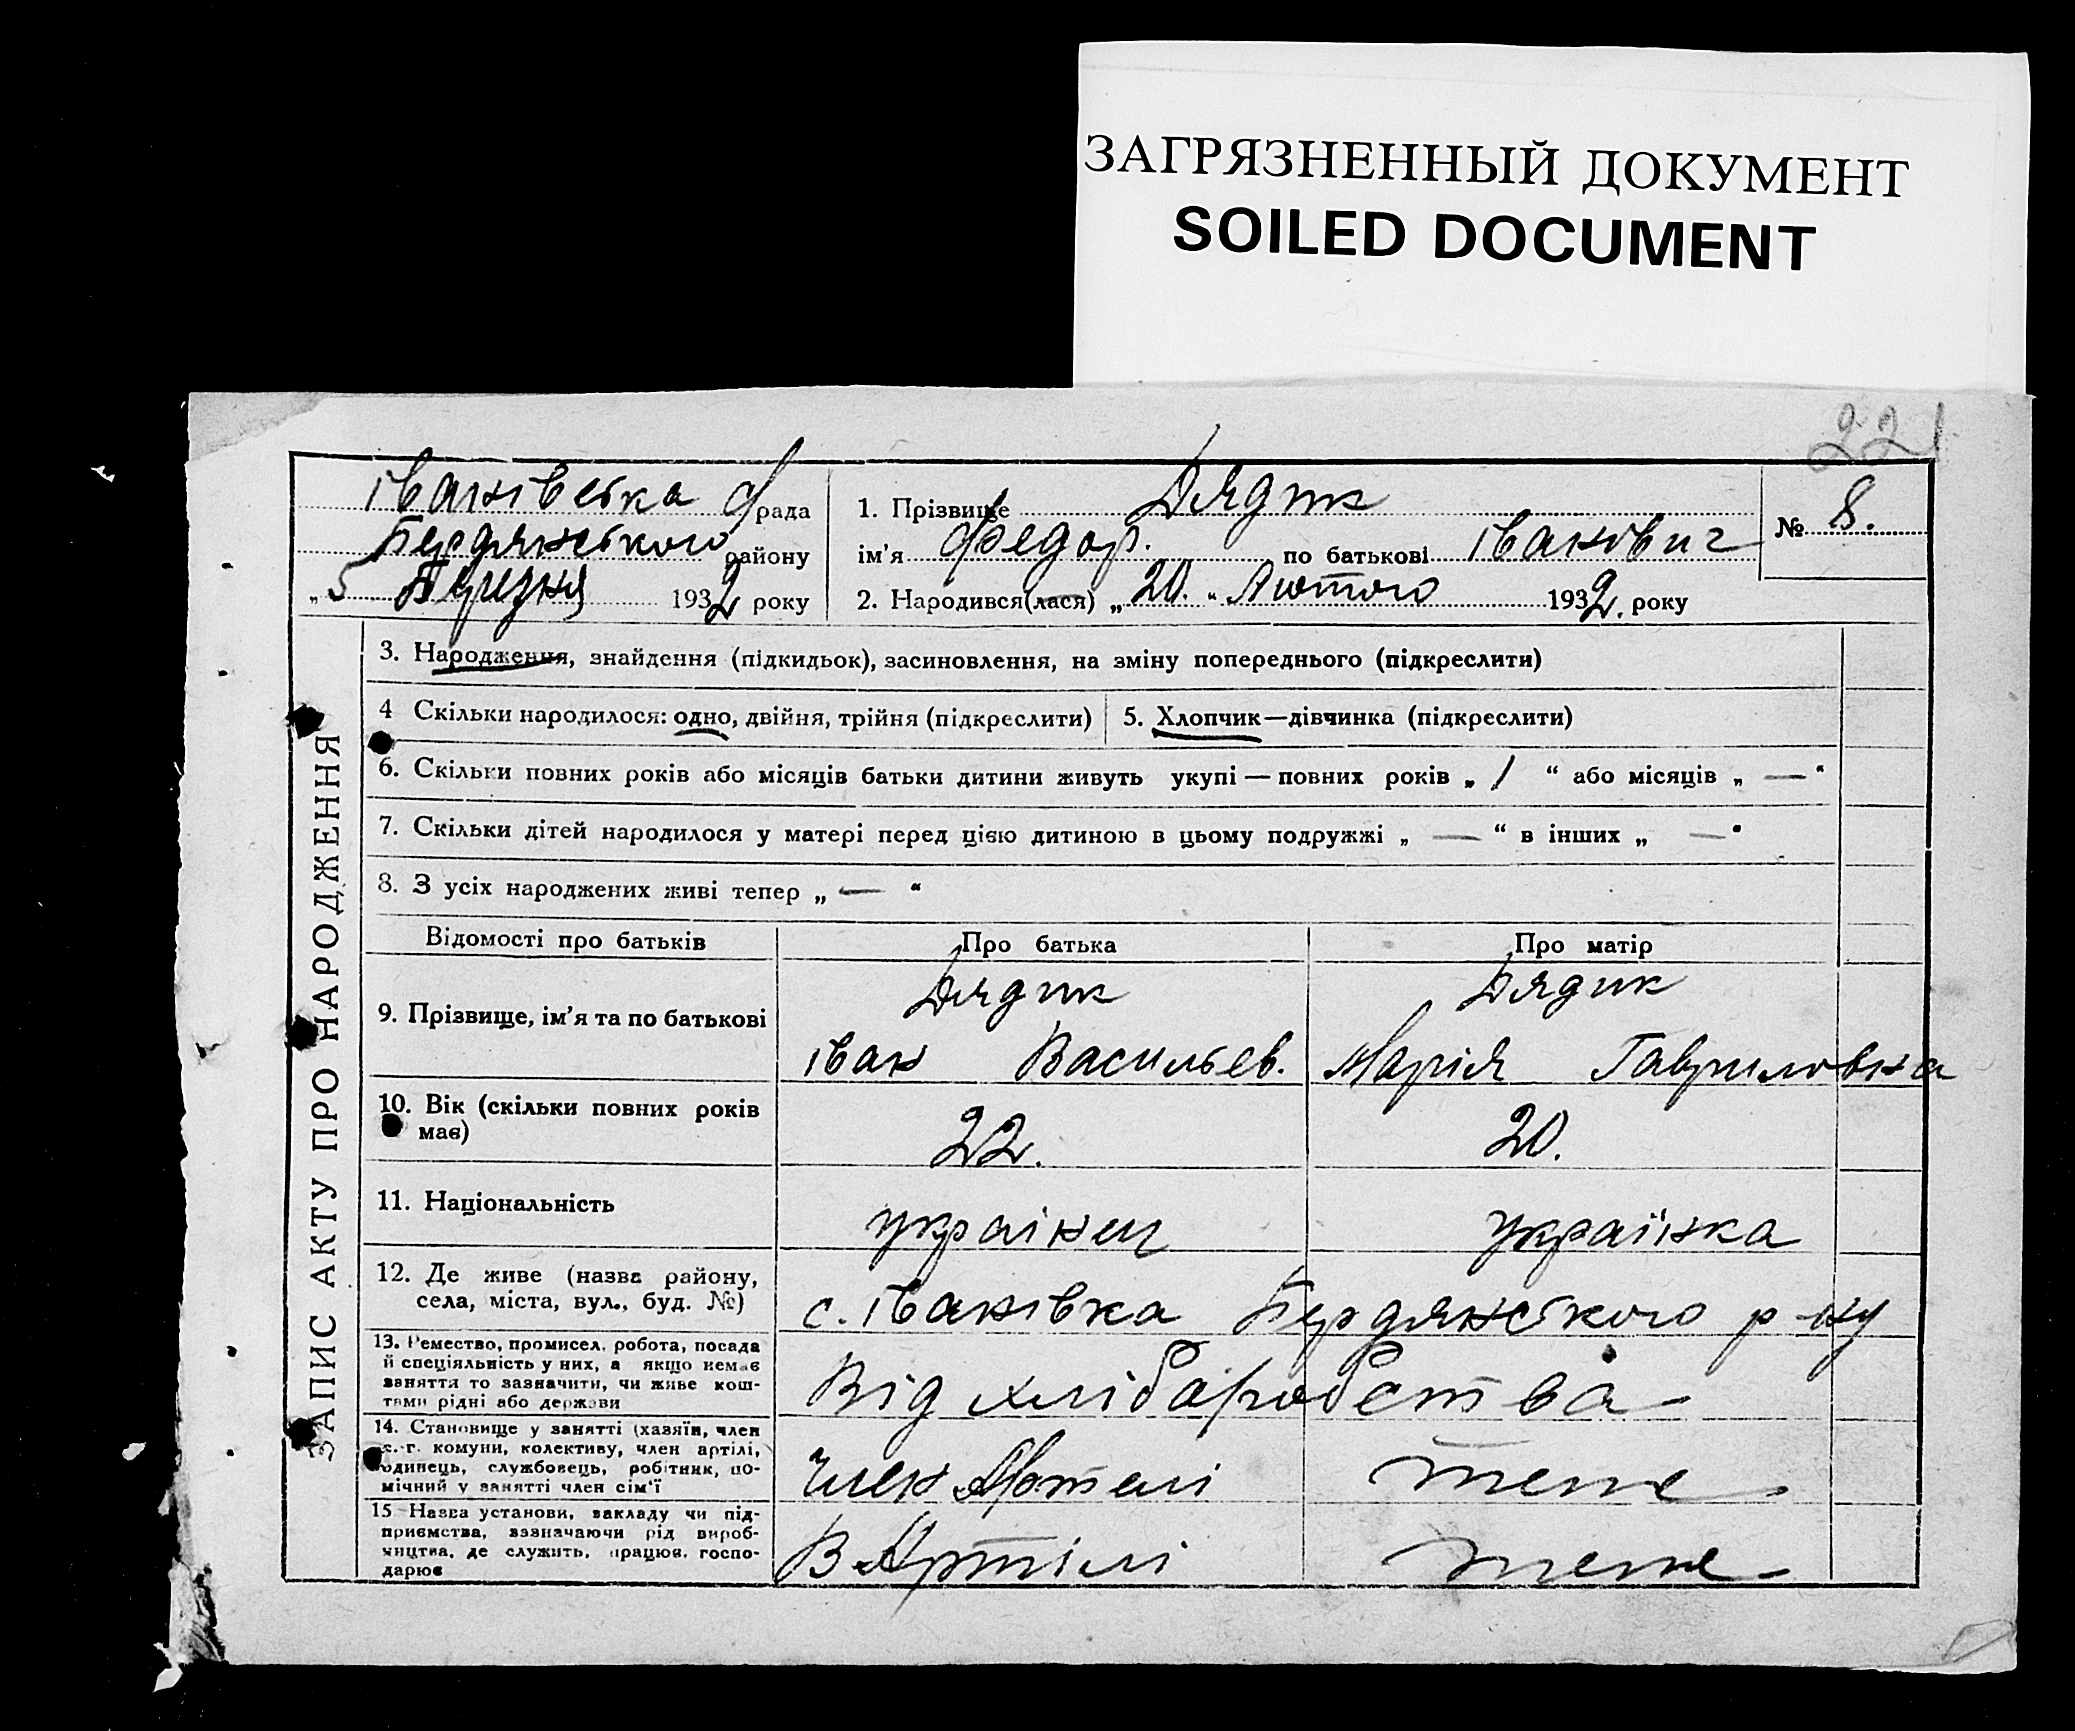 ЗАГРЯЗНЕННЫЙ ДОКУМЕНТ
SOILED DOCUMENT
221
Іванівська С/рада
Бердянського району
„5 Березня 1932 року
1. Прізвище Дядик
ім'я Федор. по батькові Іванович
2. Народився(лася) „20.“ Лютого 1932. року
№ 8.
ЗАПИС АКТУ ПРО НАРОДЖЕННЯ
3. Народження, знайдення (підкидьок), засиновлення, на зміну попереднього (підкреслити)
4 Скільки народилося: одно, двійня, трійня (підкреслити)
5. Хлопчик—дівчинка (підкреслити)
6. Скільки повних років або місяців батьки дитини живуть укупі — повних років „ 1 “ або місяців „ — “
7. Скільки дітей народилося у матері перед цією дитиною в цьому подружжі „ — “ в інших „ — “
8. З усіх народжених живі тепер „ — “
Відомості про батьків
Про батька
Про матір
9. Прізвище, ім'я та по батькові
Дядик
Іван Васильев.
Дядик
Марія Гавриловна
10. Вік (скільки повних років
має)
22.
20.
11. Національність
українец
українка
12. Де живе (назва району,
села, міста, вул., буд. №)
с. Іванівка Бердянського р-ну
13. Ремество, промисел, робота, посада
й спеціяльність у них, а якщо немає
заняття то зазначити, чи живе кош-
тами рідні або держави
Від хліборобства
14. Становище у занятті (хазяїн, член
с.-г. комуни, колективу, член артілі,
одинець, службовець, робітник, по-
мічний у занятті член сім'ї
член Артелі
теже
15 Назва установи, закладу чи під-
приємства, зазначаючи рід вироб-
ництва, де служить, працює, госпо-
дарює
В Артілі
теже